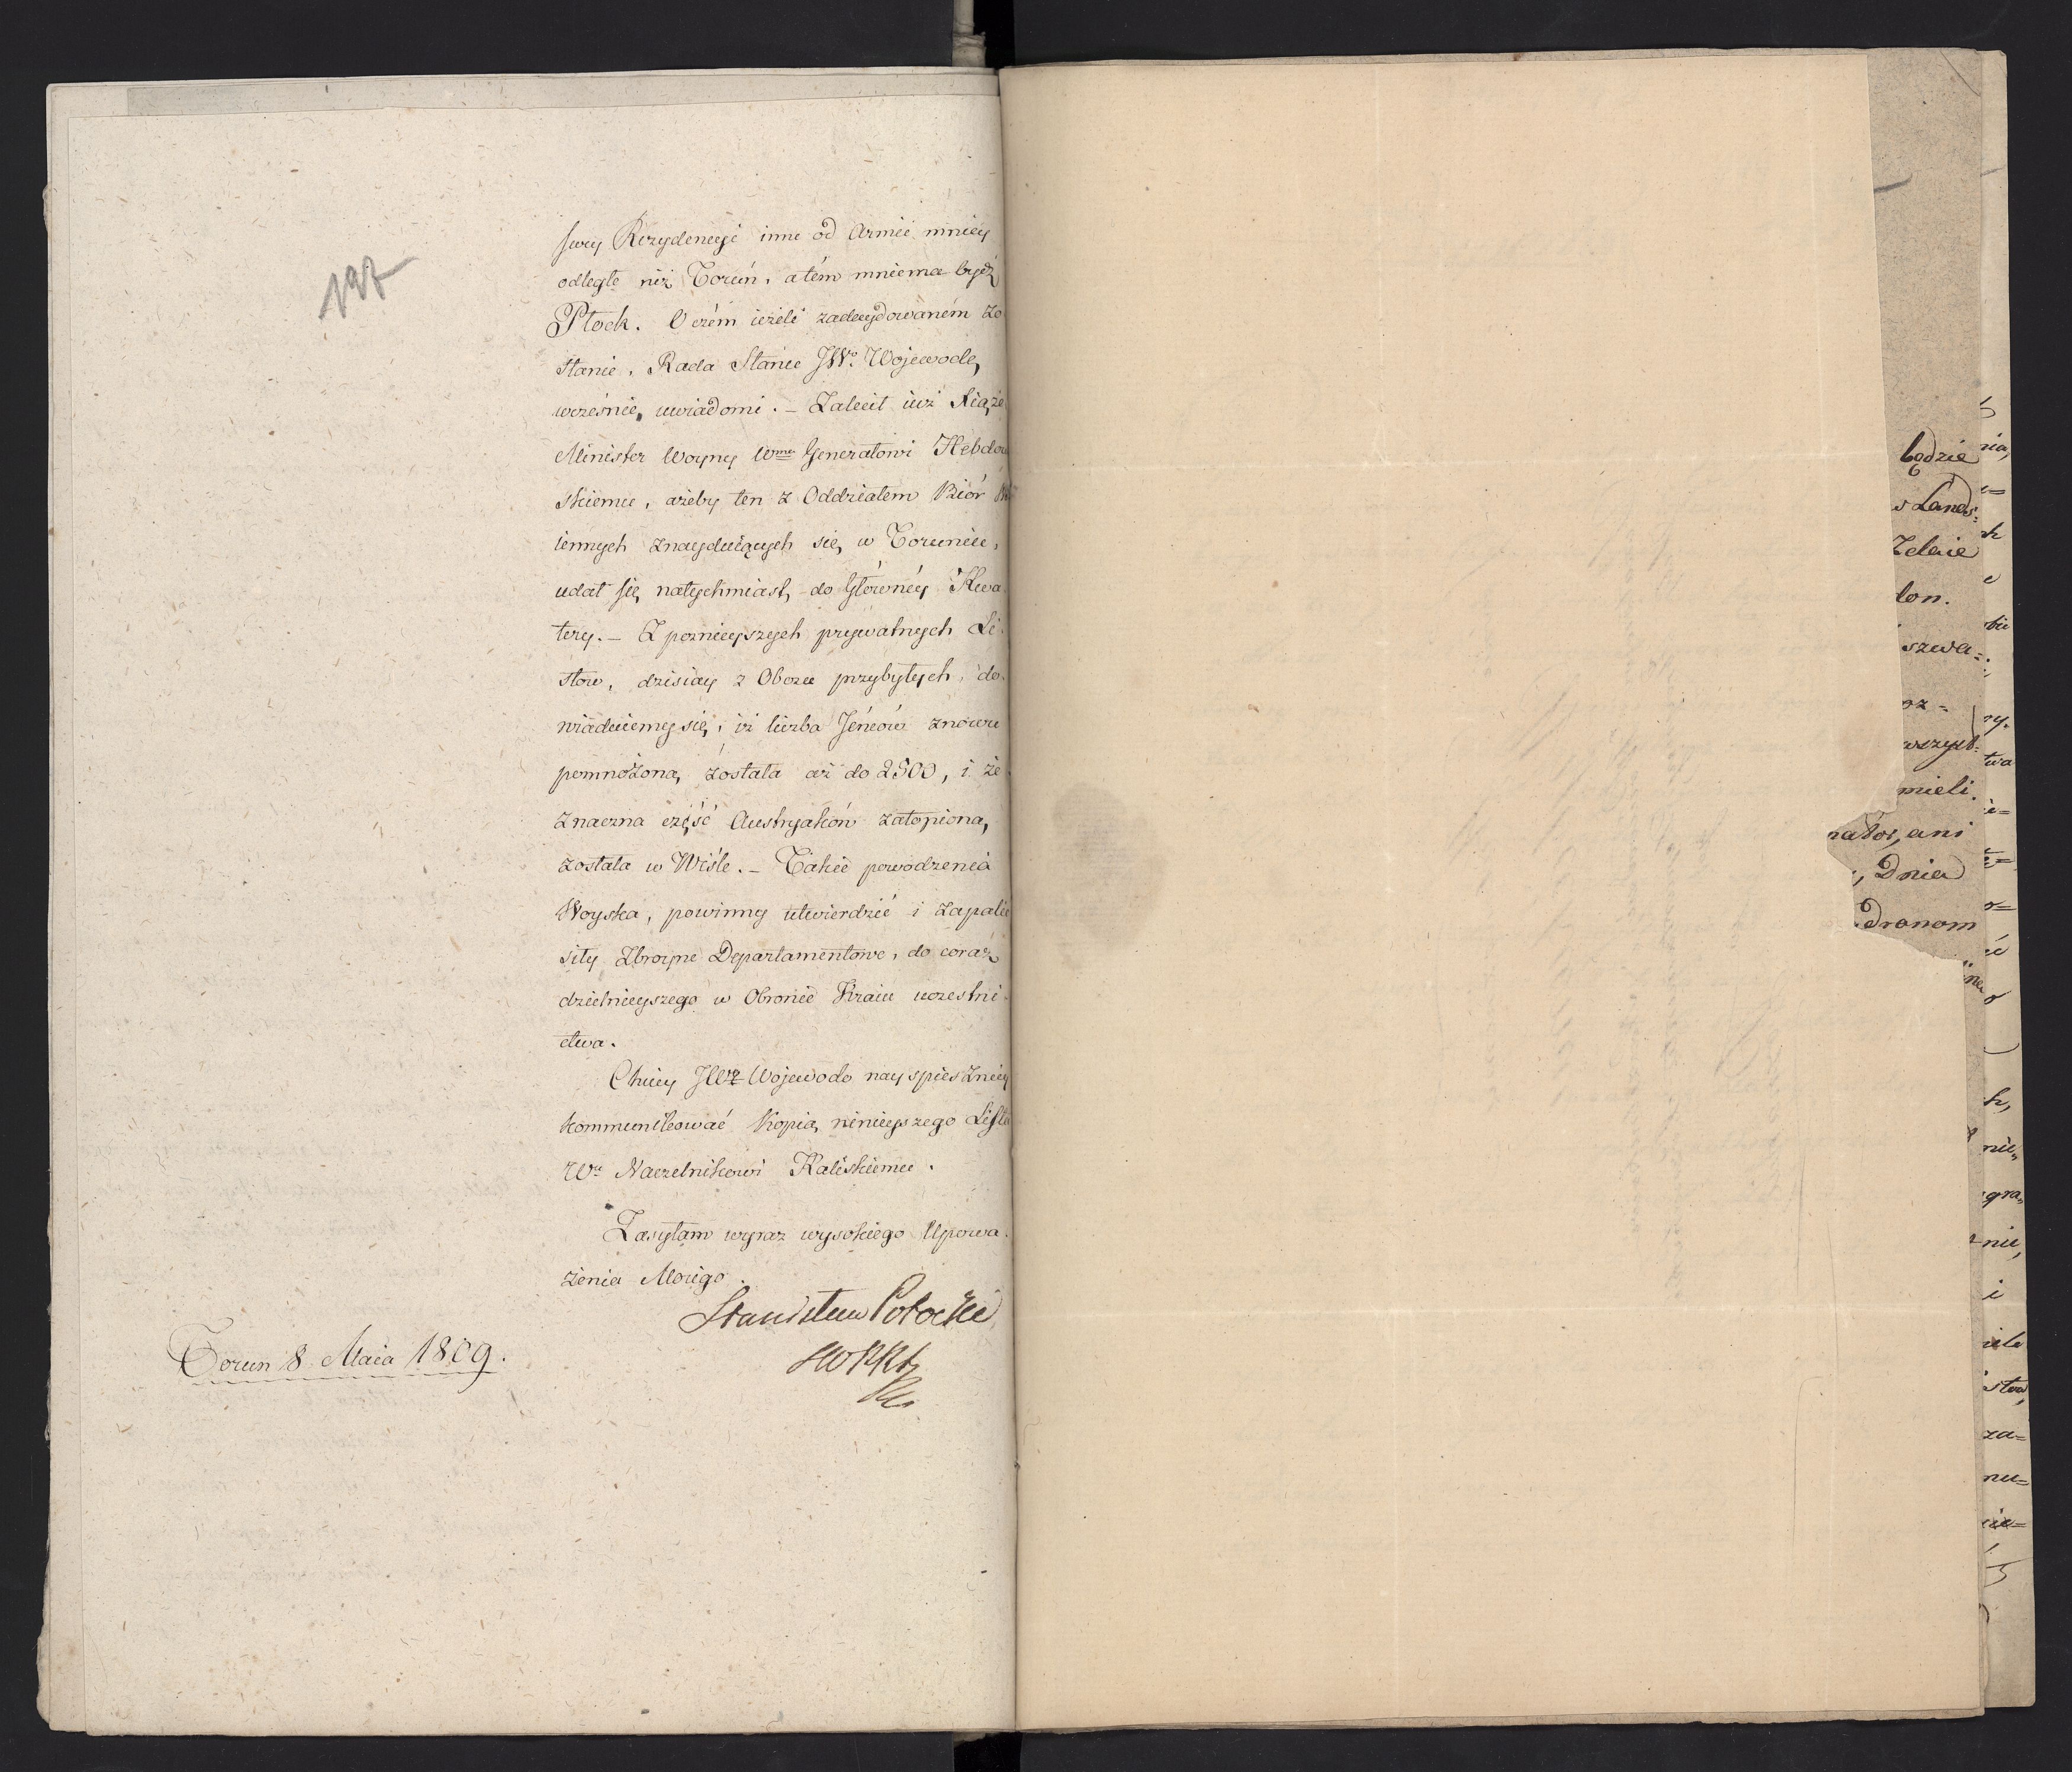 197
swey Rezydencyi inne od Armii mniey
odległe niż Toruń, a tém mniema bydź
Płock. O czém ieżeli zadecydowaném zo
stanie, Rada Stanu JWo. Wojewodę,
wcześnie, uwiadomi. – Zalecił iuż Xiąże
Minister Woyny Wmu Generałowi Hebdow
skiemu, ażeby ten z Oddziałem Biór Wo
iennych znayduiących się, w Toruniu,
udał się, natychmiast, do Główney Kwa
tery. – Z poznieyszych prywatnych Li
stów, dzisiay z Obozu przybyłych, do
wiaduiemy się, iż liczba Jeńców znowu
pomnożoną, została aż do 2500, i że
znaczna część Austryaków zatopioną,
została w Wiśle. – Takie powodzenia
Woyska, powinny utwierdzić i zapalić
siły Zbroyne Departamentowe, do coraz
dzielnieyszego w Obronie Kraiu uczestni
ctwa.
Chciey JWy Wojewodo nayspieszniey
kommunikować Kopią, ninieyszego Listu
Wu Naczelnikowi Kaliskiemu.
Zasyłam wyraz wysokiego Upowa
żenia Moiego.
Stanisław Potocki
Torun 8 Maia 1809.
będzie
s Lands:
Zelaie
don.
szwa=
oz=
wszyst=
mieli.
nator, ani
, Dnia
dronom